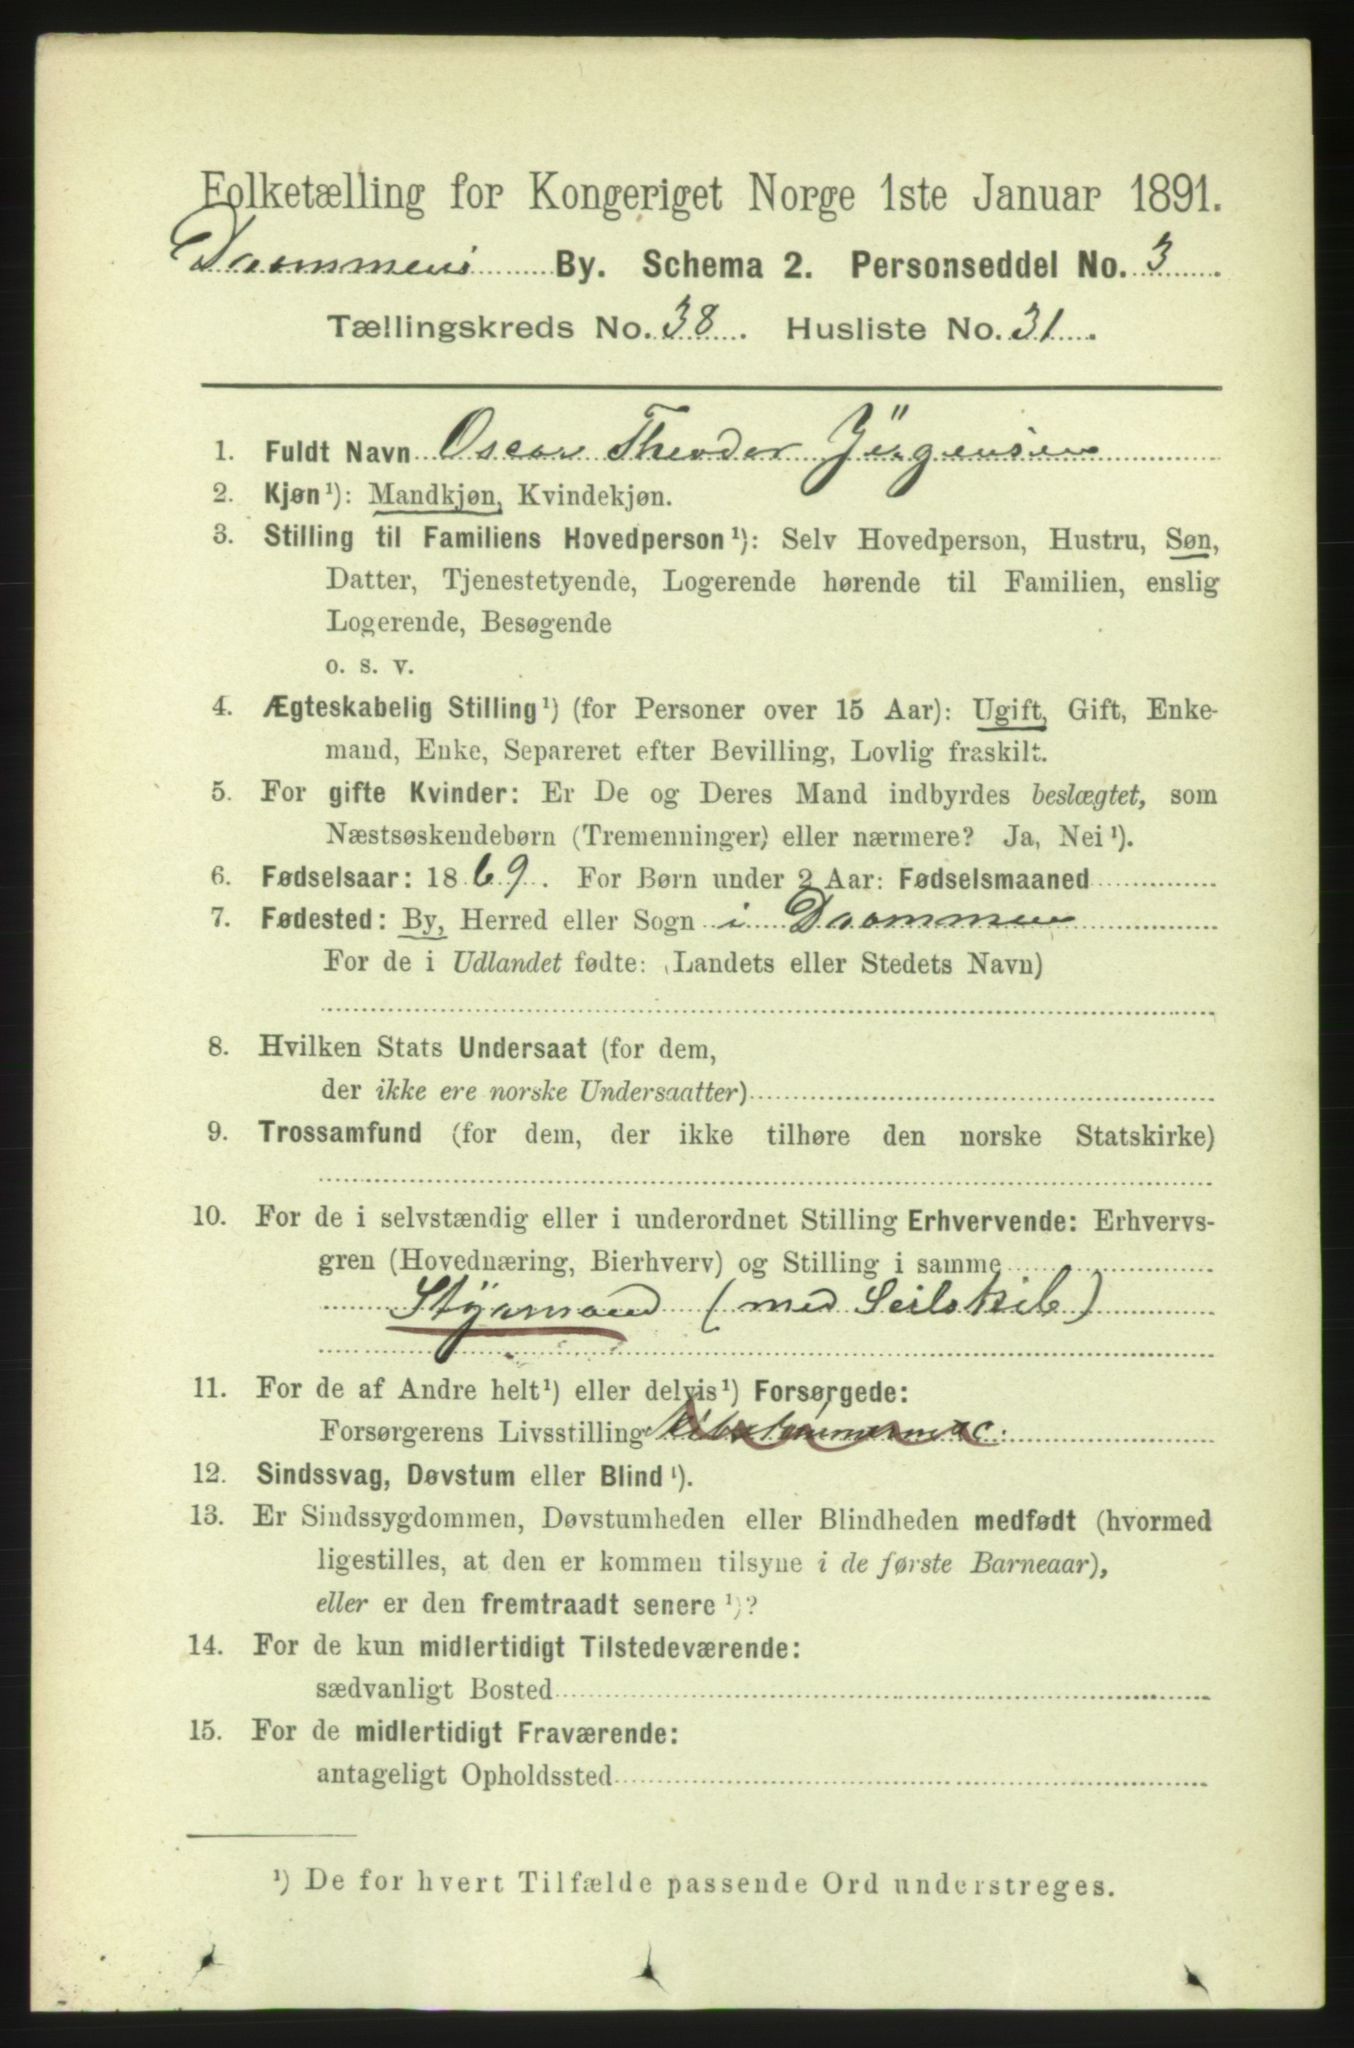 Folketælling for Kongeriget Norge 1ste Januar 1891.
Drammens By. Schema 2. Personseddel No. 3.
Tællingskreds No. 38. Husliste No. 31.
1. Fuldt Navn Oscar Theodor Jürgensen
2. Kjøn ¹): Mandkjøn, Kvindekjøn.
3. Stilling til Familiens Hovedperson ¹): Selv Hovedperson, Hustru, Søn,
Datter, Tjenestetyende, Logerende hørende til Familien, enslig
Logerende, Besøgende
o. s. v.
4. Ægteskabelig Stilling ¹) (for Personer over 15 Aar): Ugift, Gift, Enke-
mand, Enke, Separeret efter Bevilling, Lovlig fraskilt.
5. For gifte Kvinder: Er De og Deres Mand indbyrdes beslægtet, som
Næstsøskendebørn (Tremenninger) eller nærmere? Ja, Nei ¹).
6. Fødselsaar: 1869. For Børn under 2 Aar: Fødselsmaaned
7. Fødested: By, Herred eller Sogn i Drammen
For de i Udlandet fødte: (Landets eller Stedets Navn)
8. Hvilken Stats Undersaat (for dem,
der ikke ere norske Undersaatter)
9. Trossamfund (for dem, der ikke tilhøre den norske Statskirke)
10. For de i selvstændig eller i underordnet Stilling Erhvervende: Erhvervs-
gren (Hovednæring, Bierhverv) og Stilling i samme
Styrmand (med Seilskib)
11. For de af Andre helt ¹) eller delvis ¹) Forsørgede:
Forsørgerens Livsstilling
12. Sindssvag, Døvstum eller Blind ¹).
13. Er Sindssygdommen, Døvstumheden eller Blindheden medfødt (hvormed
ligestilles, at den er kommen tilsyne i de første Barneaar),
eller er den fremtraadt senere ¹)?
14. For de kun midlertidigt Tilstedeværende:
sædvanligt Bosted
15. For de midlertidigt Fraværende:
antageligt Opholdssted
¹) De for hvert Tilfælde passende Ord understreges.